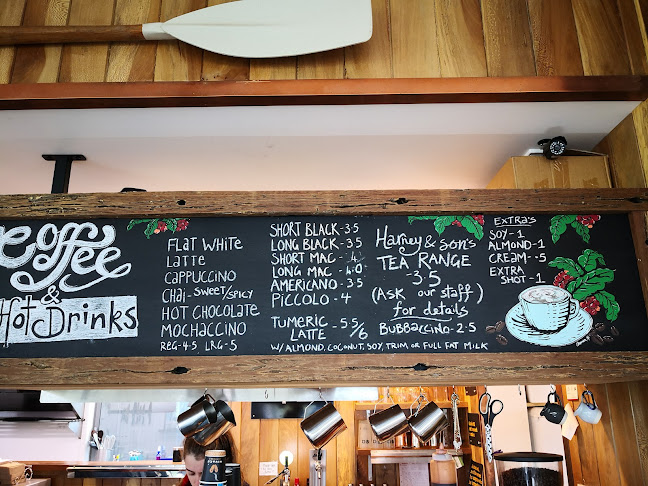 Coffee
&
Hot Drinks
FLAT WHITE
LATTE
CAPPUCCINO
CHAI-SWEET/SPICY
HOT CHOCOLATE
MOCHACCINO
REG-4.5 LRG-5
SHORT BLACK-3.5
LONG BLACK-3.5
SHORT MAC-
LONG MAC-4.0
AMERICANO-3.5
PICCOLO-4
TUMERIC - 5.5/6
LATTE
W/ ALMOND, COCONUT, SOY, TRIM OR FULL FAT MILK
Harney & Son's
TEA RANGE
3.5
(ASK our staff)
for details
BUBBACCINO-2.5
EXTRA'S
SOY-1
ALMOND-1
CREAM-.5
EXTRA
SHOT-1